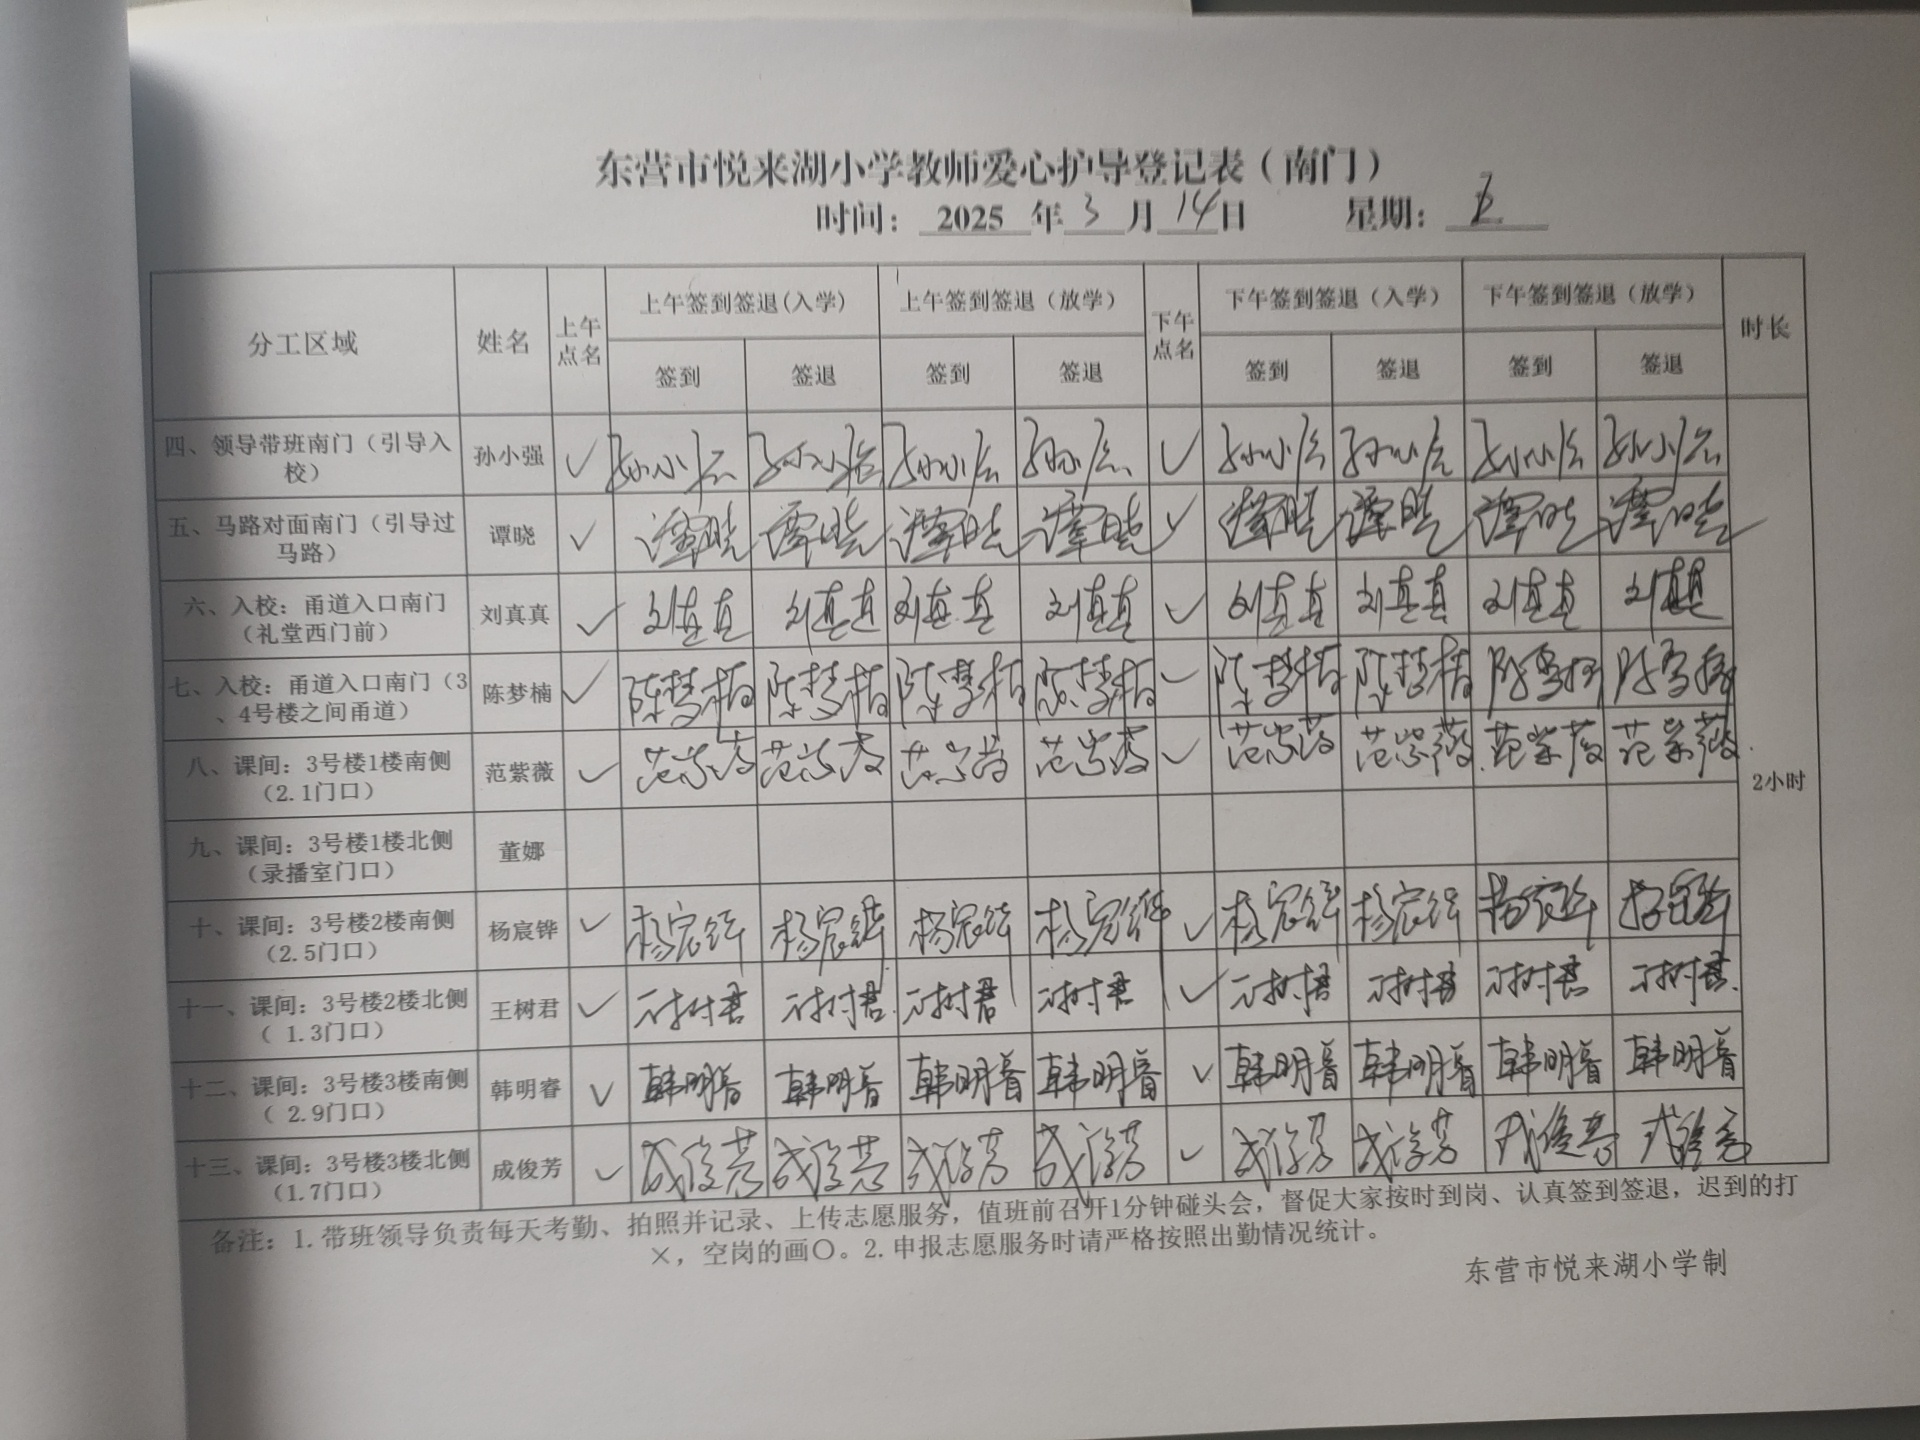 东营市悦来湖小学教师爱心护导登记表（南门）
时间： 2025 年 3 月 14 日 星期： 五
分工区域 姓名 上午点名 上午签到签退(入学) 上午签到签退（放学） 下午点名 下午签到签退（入学） 下午签到签退（放学） 时长
签到 签退 签到 签退 签到 签退 签到 签退
四、领导带班南门（引导入校） 孙小强 ✓ 孙小强 孙小强 孙小强 孙小强 ✓ 孙小强 孙小强 孙小强 孙小强
五、马路对面南门（引导过马路） 谭晓 ✓ 谭晓 谭晓 谭晓 谭晓 ✓ 谭晓 谭晓 谭晓 谭晓
六、入校：甬道入口南门（礼堂西门前） 刘真真 ✓ 刘真真 刘真真 刘真真 刘真真 ✓ 刘真真 刘真真 刘真真 刘真真
七、入校：甬道入口南门（3、4号楼之间甬道） 陈梦楠 ✓ 陈梦楠 陈梦楠 陈梦楠 陈梦楠 ✓ 陈梦楠 陈梦楠
八、课间：3号楼1楼南侧（2.1门口） 范紫薇 ✓ 范紫薇 范紫薇 范紫薇 范紫薇 ✓ 范紫薇 范紫薇 范紫薇 范紫薇
2小时
九、课间：3号楼1楼北侧（录播室门口） 董娜
十、课间：3号楼2楼南侧（2.5门口） 杨宸铧 ✓ 杨宸铧 杨宸铧 杨宸铧 杨宸铧 ✓ 杨宸铧 杨宸铧 杨宸铧 杨宸铧
十一、课间：3号楼2楼北侧（ 1.3门口） 王树君 ✓ 王树君 王树君 王树君 王树君 ✓ 王树君 王树君 王树君 王树君
十二、课间：3号楼3楼南侧（ 2.9门口） 韩明睿 ✓ 韩明睿 韩明睿 韩明睿 韩明睿 ✓ 韩明睿 韩明睿 韩明睿 韩明睿
十三、课间：3号楼3楼北侧（1.7门口） 成俊芳 ✓ 成俊芳 成俊芳 成俊芳 成俊芳 ✓ 成俊芳 成俊芳 成俊芳 成俊芳
备注：1.带班领导负责每天考勤、拍照并记录、上传志愿服务，值班前召开1分钟碰头会，督促大家按时到岗、认真签到签退，迟到的打
×，空岗的画〇。2.申报志愿服务时请严格按照出勤情况统计。
东营市悦来湖小学制